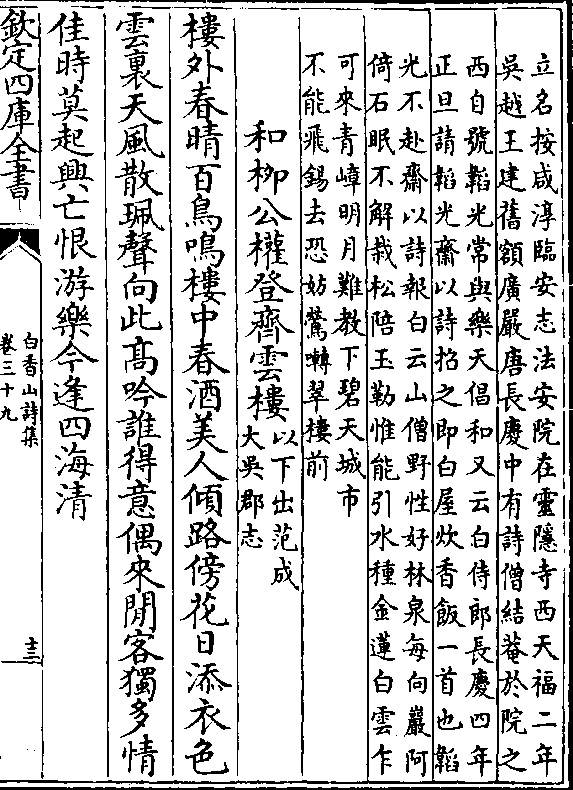 立名按咸淳臨安志法安院在靈隱寺西天福二年
吳越王建舊額廣嚴唐長慶中有詩僧結菴於院之
西自號韜光常與樂天倡和又云白侍郎長慶四年
正旦請韜光齋以詩招之即白屋炊香飯一首也韜
光不赴齋以詩報白云山僧野性好林泉每向巖阿
倚石眠不解栽松陪玉勒惟能引水種金蓮白雲乍
可來青嶂明月難教下碧天城市
不能飛錫去恐妨鶯囀翠樓前
和柳公權登齊雲樓以下出范成
大吳郡志
樓外春晴百鳥鳴樓中春酒美人傾路傍花日添衣色
雲裏天風散珮聲向此高吟誰得意偶來閒客獨多情
佳時莫起興亡恨游樂今逢四海清
欽定四庫全書
白香山詩集
卷三十九
十三